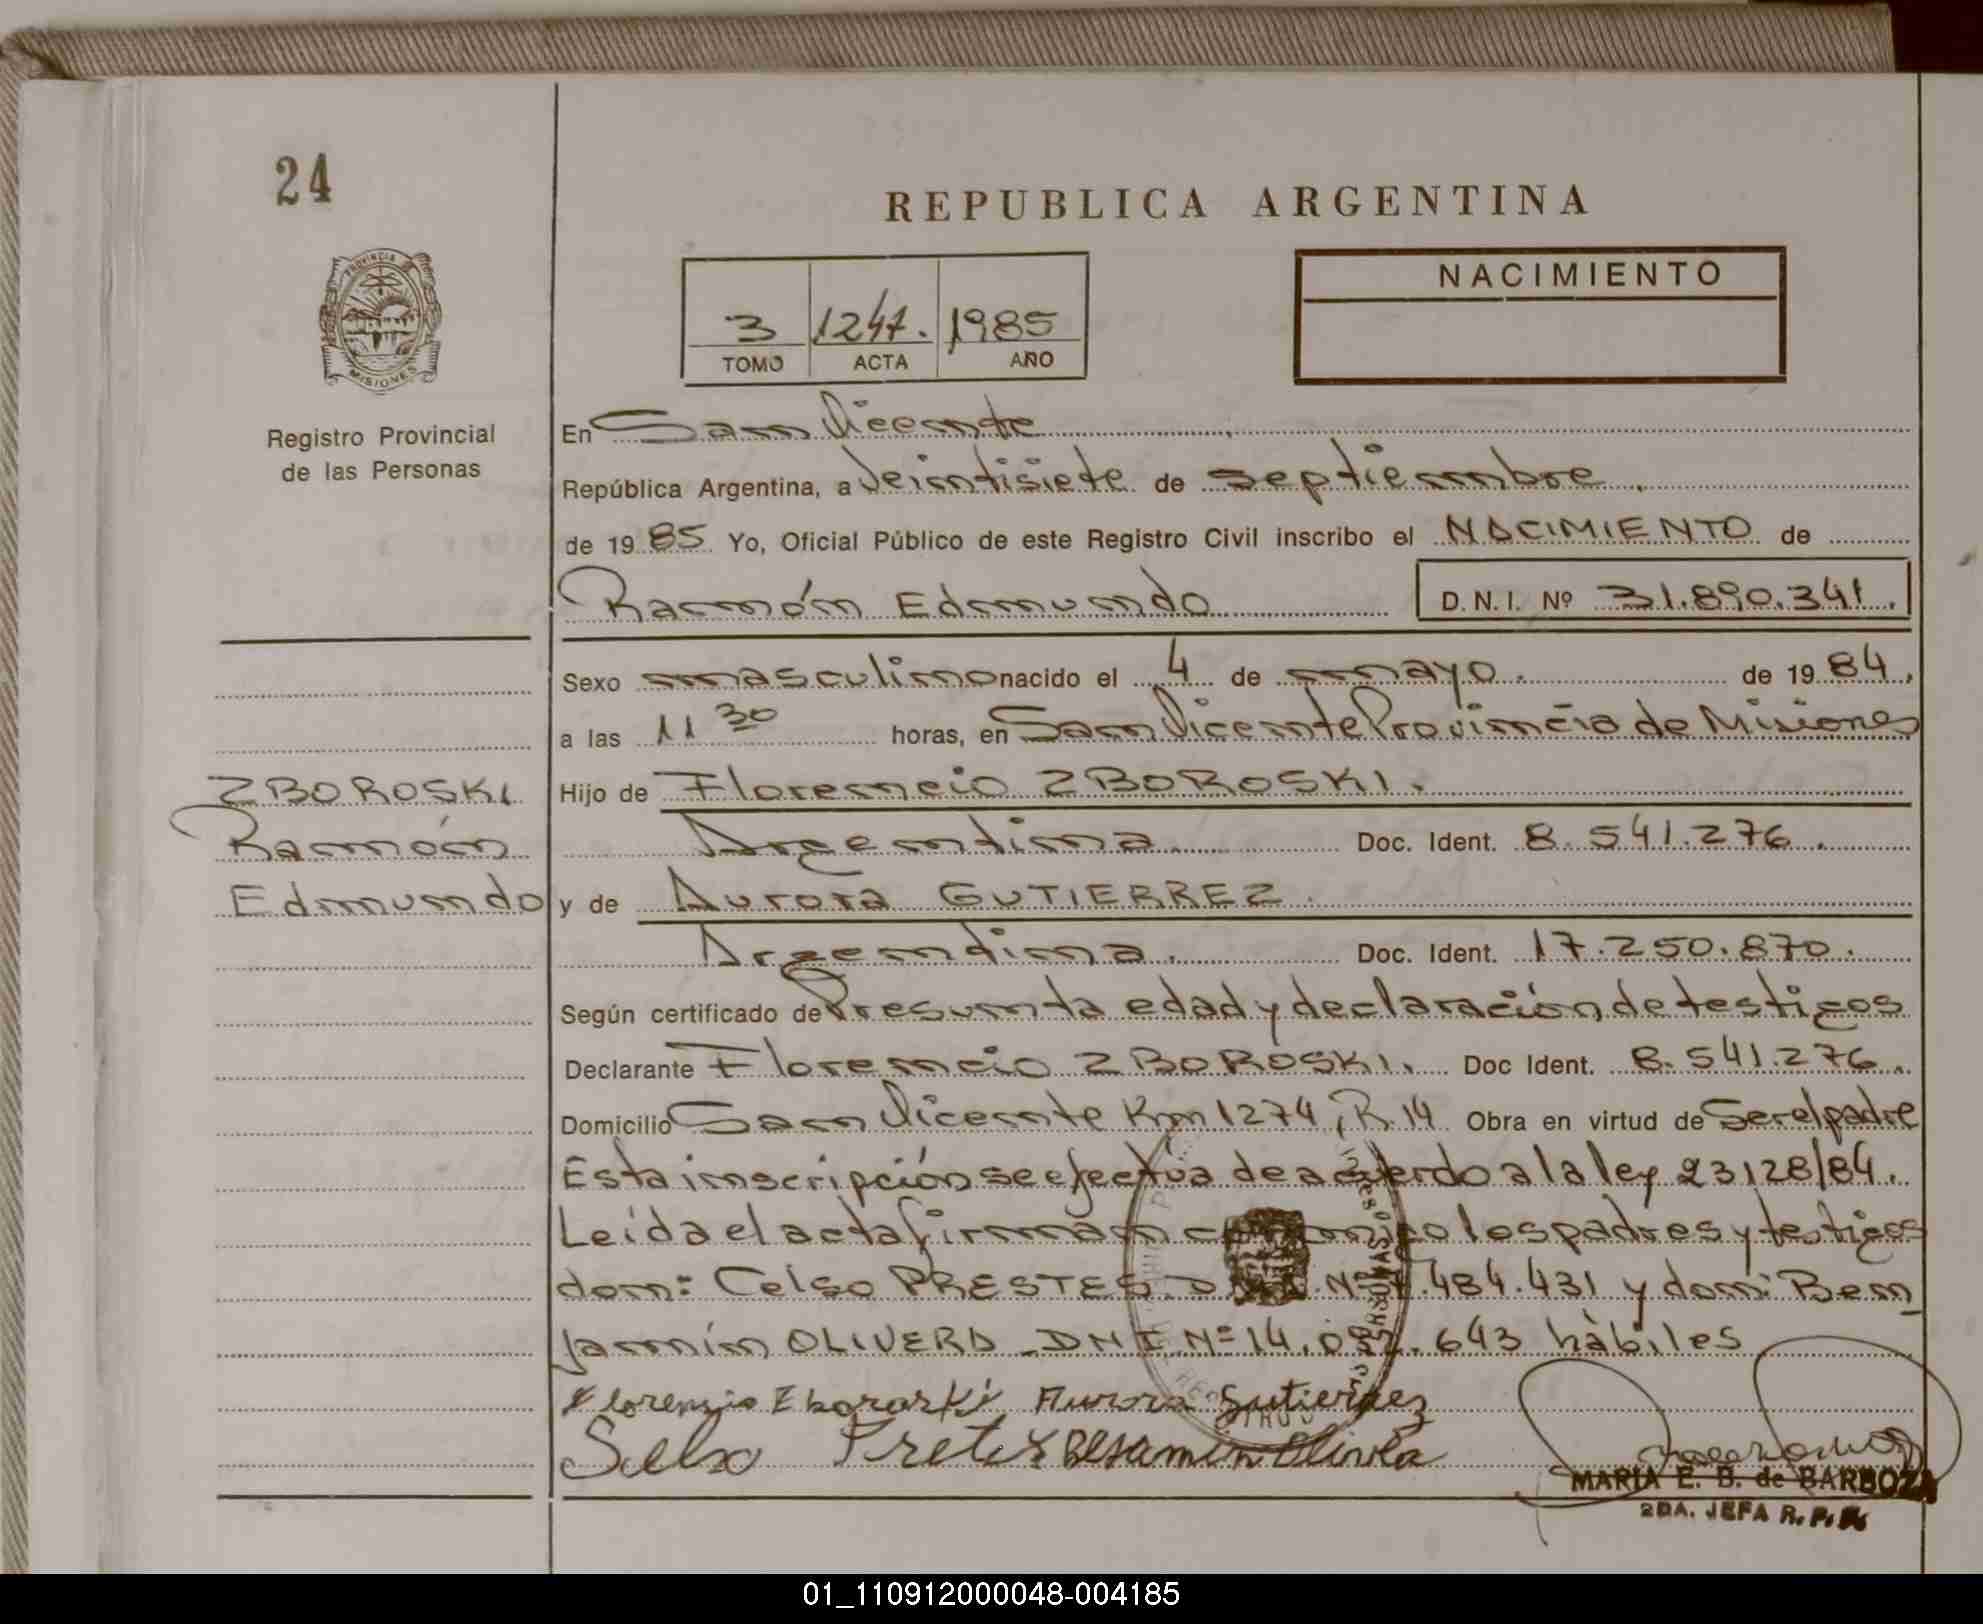 24
REPUBLICA ARGENTINA
PROVINCIA
MISIONES
Registro Provincial
de las Personas
3 1247. 1985
TOMO ACTA AÑO
NACIMIENTO
En San Vicente
República Argentina, a Veintisiete de septiembre.
de 1985 Yo, Oficial Público de este Registro Civil inscribo el NACIMIENTO de
Ramón Edmundo D.N.I. Nº 31.890.341.
Sexo masculino nacido el 4 de mayo. de 1984.
a las 11 30 horas, en San Vicente Provincia de Misiones
ZBOROSKI
Ramón
Edmundo
Hijo de Florencio ZBOROSKI.
Argentina. Doc. Ident. 8.541.276.
y de Aurora GUTIERREZ.
Argentina. Doc. Ident. 17.250.870.
Según certificado de Presunta edad y declaración de testigos
Declarante Florencio ZBOROSKI. Doc Ident. 8.541.276.
Domicilio San Vicente Km 1274, R.14 Obra en virtud de Ser el padre
Esta inscripción se efectúa de acuerdo a la ley 23128/84.
Leída el acta firman conmigo los padres y testigos
don: Celso PRESTES D.N.I. Nº .484.431 y don: Ben
jamín OLIVERA DNI Nº 14.0 .643 hàbiles
Florensio Zboroski Aurora Gutierrez
Selso Pretes Besamin Olivera
MARIA E. B. de BARBOZA
2DA. JEFA R.P.P.
01_110912000048-004185